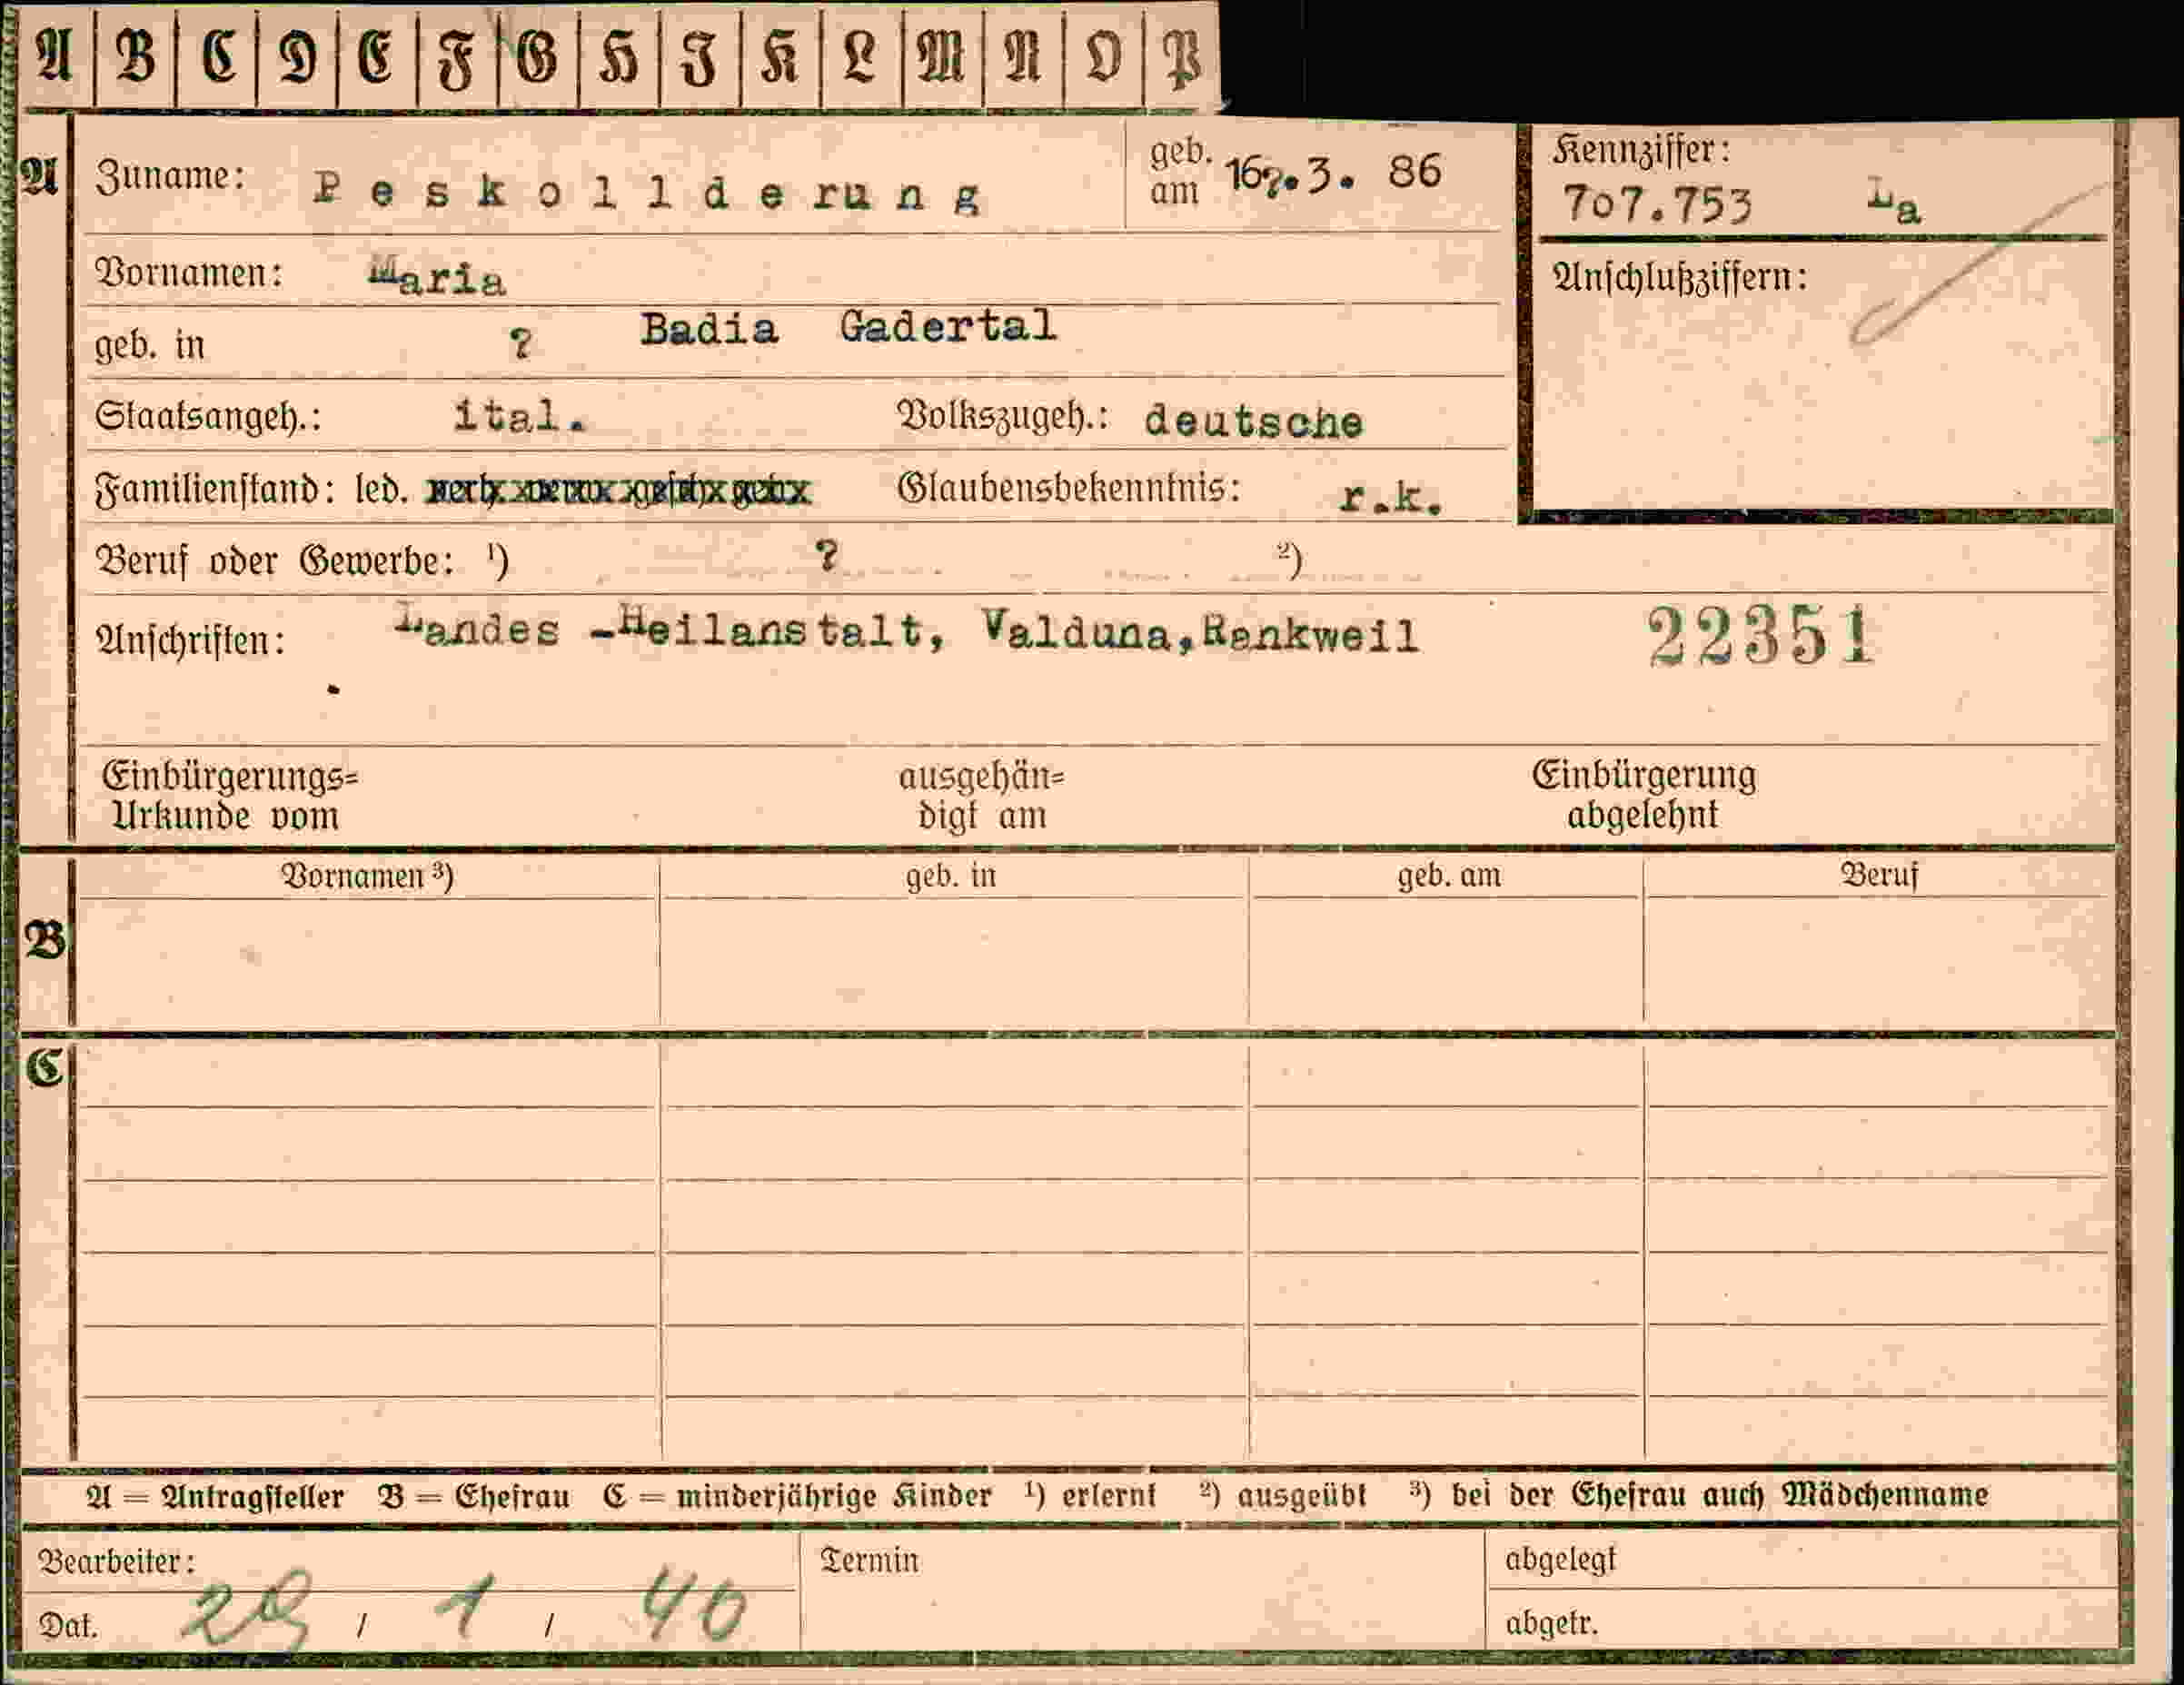 A B C D E F G H I K L M N O P
A Zuname: Peskollderung geb. am 16?.3. 86 Kennziffer: 707.753 La
Vornamen: Maria Anschlußziffern:
geb. in ? Badia Gadertal
Staatsangeh.: ital. Volkszugeh.: deutsche
Familienstand: led. Glaubensbekenntnis: r.k.
Beruf oder Gewerbe: ¹) ? ²)
Anschriften: Landes -Heilanstalt, Valduna,Rankweil 22351
Einbürgerungs= ausgehän= Einbürgerung
Urkunde vom digt am abgelehnt
Vornamen ³) geb. in geb. am Beruf
B
C
A = Antragsteller B = Ehefrau C = minderjährige Kinder ¹) erlernt ²) ausgeübt ³) bei der Ehefrau auch Mädchenname
Bearbeiter: Termin abgelegt
Dat. 29 / 1 / 40 abgetr.